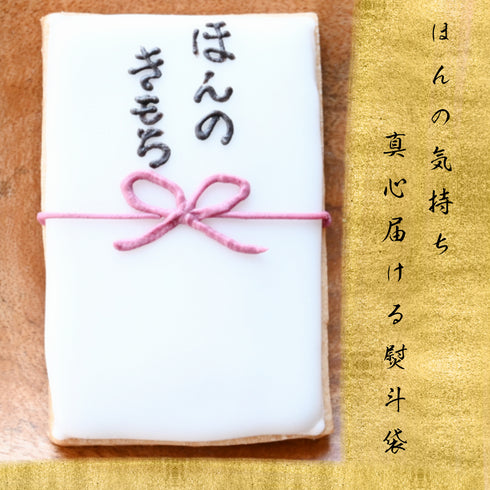 ほんの
きもち
ほんの気持ち
真心届ける熨斗袋